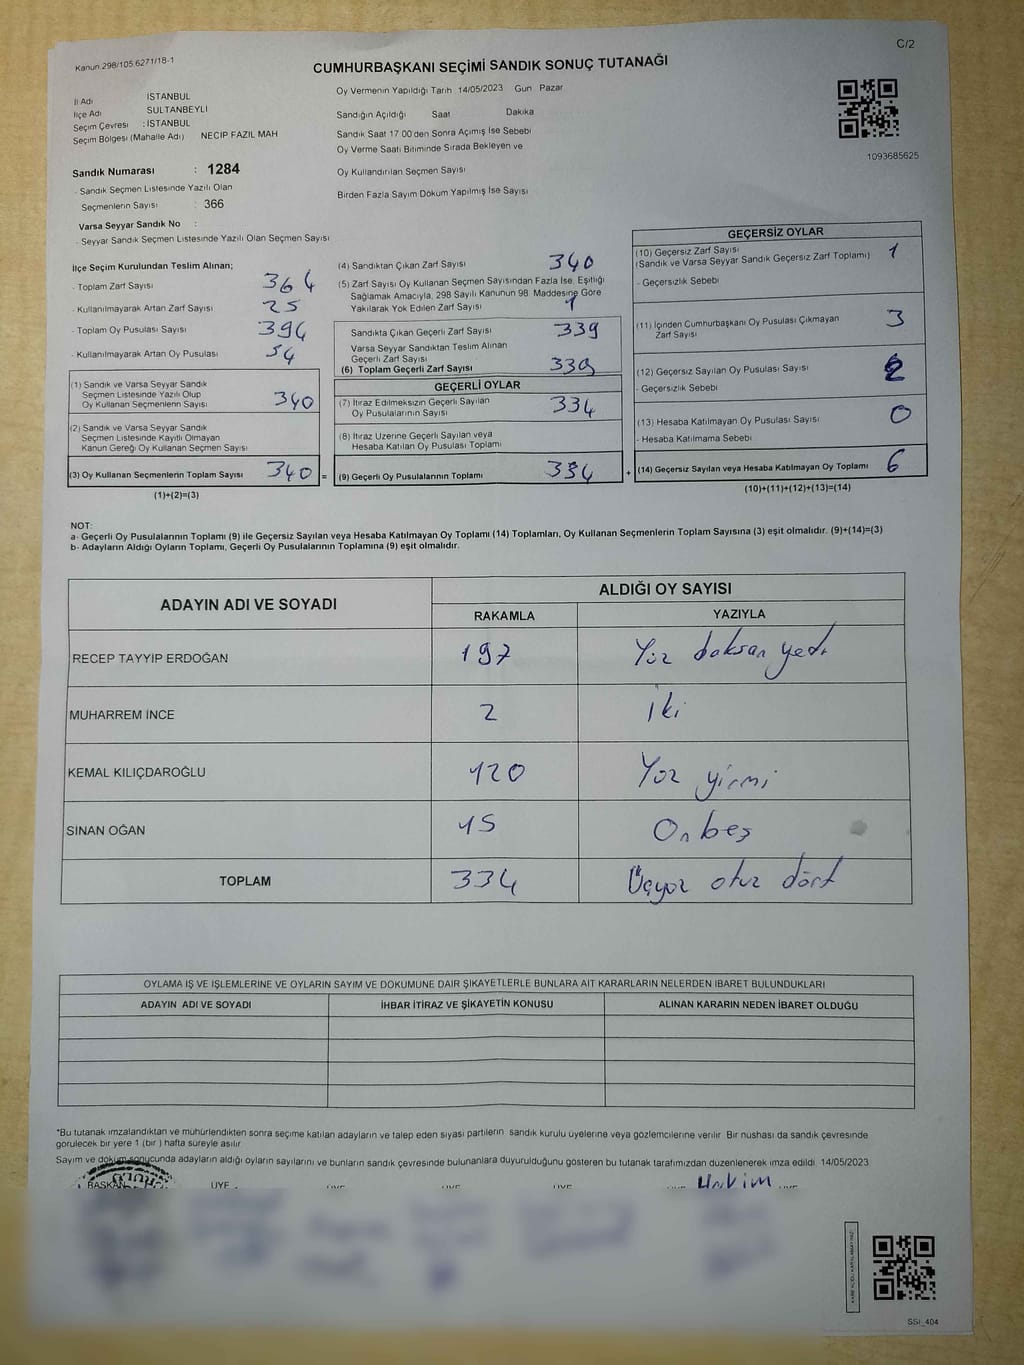 C/2
Kanun 298/105,6271/18-1
CUMHURBAŞKANI SEÇİMİ SANDIK SONUÇ TUTANAĞI
İl Adı İSTANBUL
İlçe Adı SULTANBEYLİ
Seçim Çevresi : İSTANBUL
Seçim Bölgesi (Mahalle Adı) NECİP FAZIL MAH
Sandık Numarası : 1284
- Sandık Seçmen Listesinde Yazılı Olan
Seçmenlerin Sayısı : 366
Varsa Seyyar Sandık No :
- Seyyar Sandık Seçmen Listesinde Yazılı Olan Seçmen Sayısı
Oy Vermenin Yapıldığı Tarih 14/05/2023 Gün Pazar
Sandığın Açıldığı Saat Dakika
Sandık Saat 17 00'den Sonra Açılmış İse Sebebi
Oy Verme Saati Bitiminde Sırada Bekleyen ve
Oy Kullandırılan Seçmen Sayısı
Birden Fazla Sayım Döküm Yapılmış İse Sayısı
1093685625
İlçe Seçim Kurulundan Teslim Alınan;
- Toplam Zarf Sayısı 364
- Kullanılmayarak Artan Zarf Sayısı 25
- Toplam Oy Pusulası Sayısı 394
- Kullanılmayarak Artan Oy Pusulası 54
(1) Sandık ve Varsa Seyyar Sandık
Seçmen Listesinde Yazılı Olup
Oy Kullanan Seçmenlerin Sayısı 340
(2) Sandık ve Varsa Seyyar Sandık
Seçmen Listesinde Kayıtlı Olmayan
Kanun Gereği Oy Kullanan Seçmen Sayısı
(3) Oy Kullanan Seçmenlerin Toplam Sayısı 340 =
(1)+(2)=(3)
(4) Sandıktan Çıkan Zarf Sayısı 340
(5) Zarf Sayısı Oy Kullanan Seçmen Sayısından Fazla İse, Eşitliği
Sağlamak Amacıyla, 298 Sayılı Kanunun 98. Maddesine Göre
Yakılarak Yok Edilen Zarf Sayısı 1
Sandıkta Çıkan Geçerli Zarf Sayısı 339
Varsa Seyyar Sandıktan Teslim Alınan
Geçerli Zarf Sayısı
(6) Toplam Geçerli Zarf Sayısı 339
GEÇERLİ OYLAR
(7) İtiraz Edilmeksizin Geçerli Sayılan
Oy Pusulalarının Sayısı 334
(8) İtiraz Üzerine Geçerli Sayılan veya
Hesaba Katılan Oy Pusulası Toplamı
(9) Geçerli Oy Pusulalarının Toplamı 334 +
GEÇERSİZ OYLAR
(10) Geçersiz Zarf Sayısı 1
(Sandık ve Varsa Seyyar Sandık Geçersiz Zarf Toplamı)
- Geçersizlik Sebebi
(11) İçinden Cumhurbaşkanı Oy Pusulası Çıkmayan
Zarf Sayısı 3
(12) Geçersiz Sayılan Oy Pusulası Sayısı 2
- Geçersizlik Sebebi
(13) Hesaba Katılmayan Oy Pusulası Sayısı 0
- Hesaba Katılmama Sebebi
(14) Geçersiz Sayılan veya Hesaba Katılmayan Oy Toplamı 6
(10)+(11)+(12)+(13)=(14)
NOT:
a- Geçerli Oy Pusulalarının Toplamı (9) ile Geçersiz Sayılan veya Hesaba Katılmayan Oy Toplamı (14) Toplamları, Oy Kullanan Seçmenlerin Toplam Sayısına (3) eşit olmalıdır. (9)+(14)=(3)
b- Adayların Aldığı Oyların Toplamı, Geçerli Oy Pusulalarının Toplamına (9) eşit olmalıdır.
ADAYIN ADI VE SOYADI ALDIĞI OY SAYISI
RAKAMLA YAZIYLA
RECEP TAYYİP ERDOĞAN 197 Yüz doksan yedi
MUHARREM İNCE 2 iki
KEMAL KILIÇDAROĞLU 120 Yüz yirmi
SİNAN OĞAN 15 On beş
TOPLAM 334 Üçyüz otuz dört
OYLAMA İŞ VE İŞLEMLERİNE VE OYLARIN SAYIM VE DÖKÜMÜNE DAİR ŞİKAYETLERLE BUNLARA AİT KARARLARIN NELERDEN İBARET BULUNDUKLARI
ADAYIN ADI VE SOYADI İHBAR İTİRAZ VE ŞİKAYETİN KONUSU ALINAN KARARIN NEDEN İBARET OLDUĞU
*Bu tutanak imzalandıktan ve mühürlendikten sonra seçime katılan adayların ve talep eden siyasi partilerin sandık kurulu üyelerine veya gözlemcilerine verilir Bir nüshası da sandık çevresinde
görülecek bir yere 1 (bir) hafta süreyle asılır
Sayım ve döküm sonucunda adayların aldığı oyların sayılarını ve bunların sandık çevresinde bulunanlara duyurulduğunu gösteren bu tutanak tarafımızdan düzenlenerek imza edildi 14/05/2023
BAŞKAN ÜYE ÜYE ÜYE ÜYE
SSİ_404